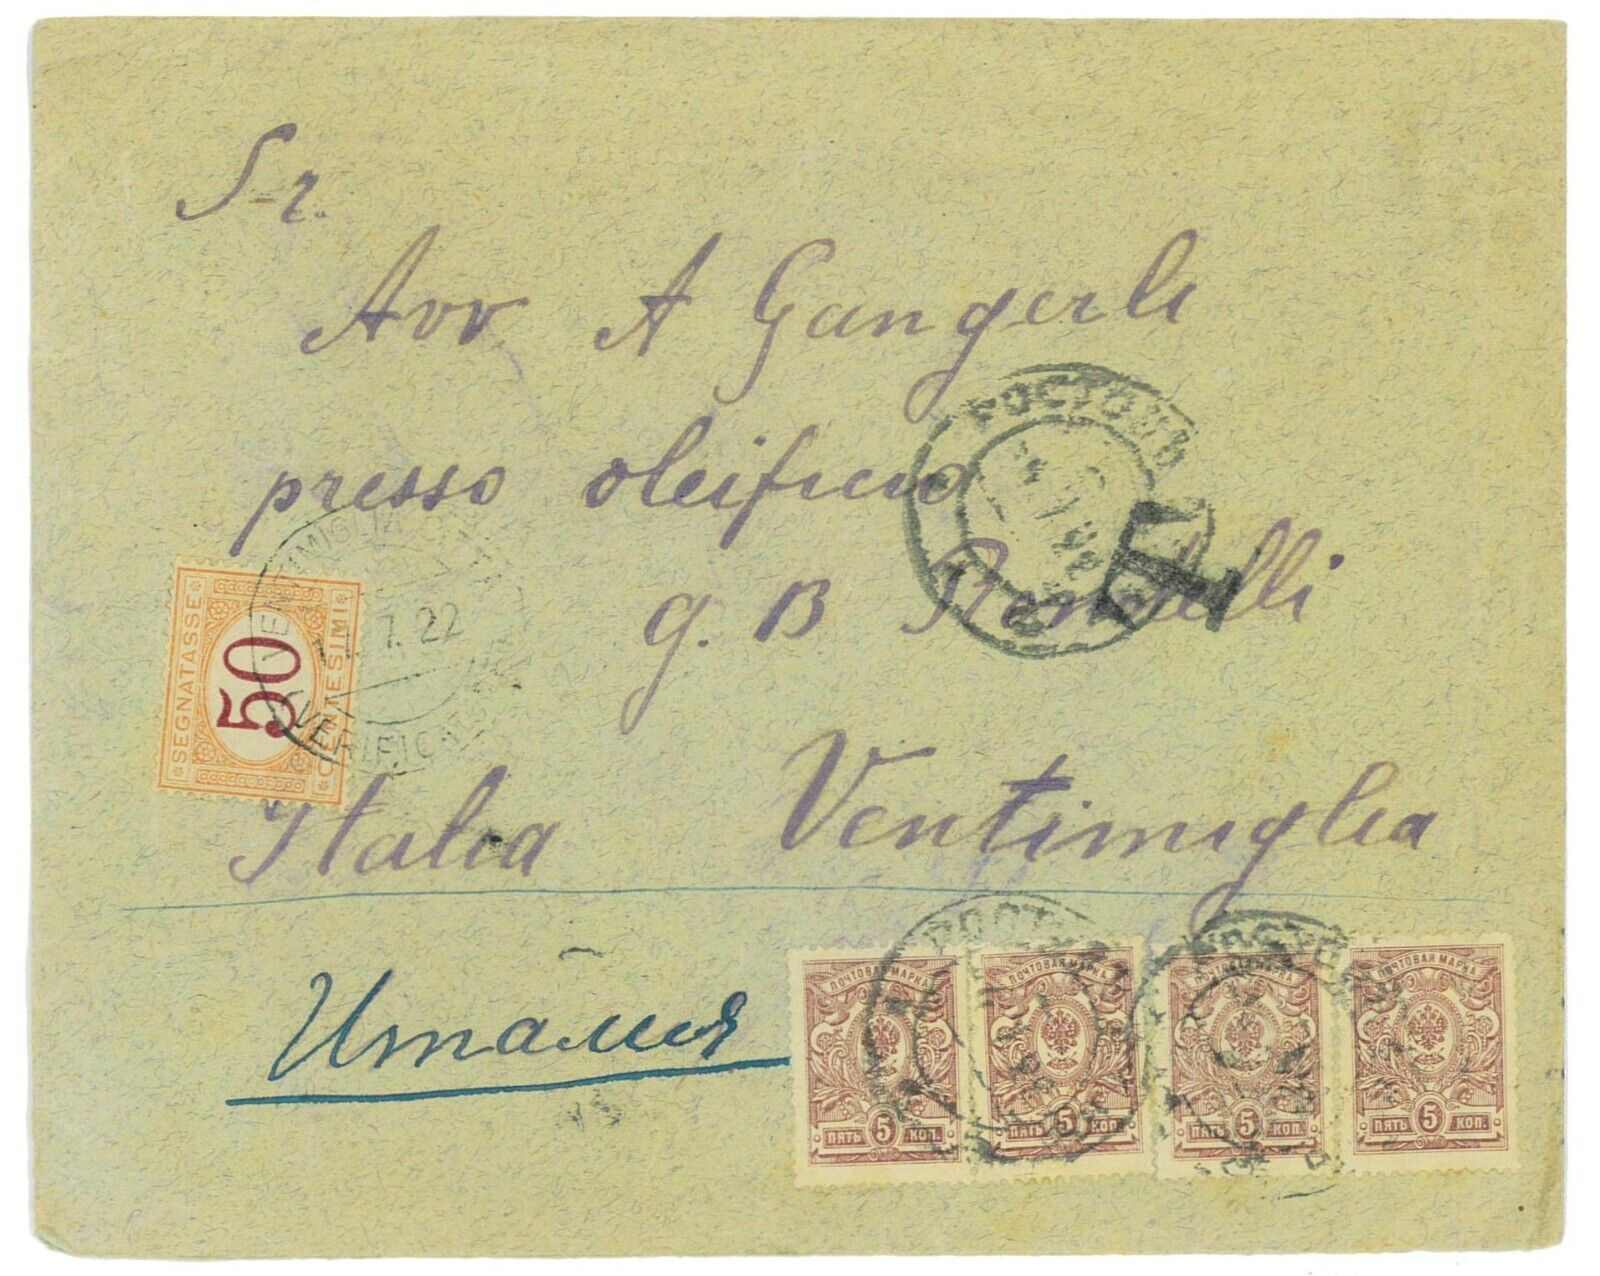 S-r.
Avv A Gangerli
presso oleificio
РОСТОВЪ
T
g. B
VENTIMIGLIA
7.22
VERIFICA
SEGNATASSE
50
CENTESIMI
Italia Ventimiglia
Италия
ПОЧТОВАЯ МАРКА
ПЯТЬ 5 КОП.
ПОЧТОВАЯ МАРКА
ПЯТЬ 5 КОП.
ПОЧТОВАЯ МАРКА
ПЯТЬ 5 КОП.
ПОЧТОВАЯ МАРКА
ПЯТЬ 5 КОП.